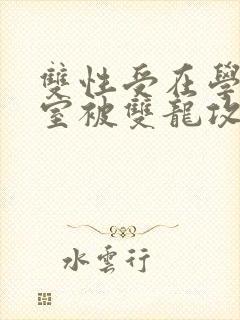 雙性受在學
室被雙龍攻
水雲行